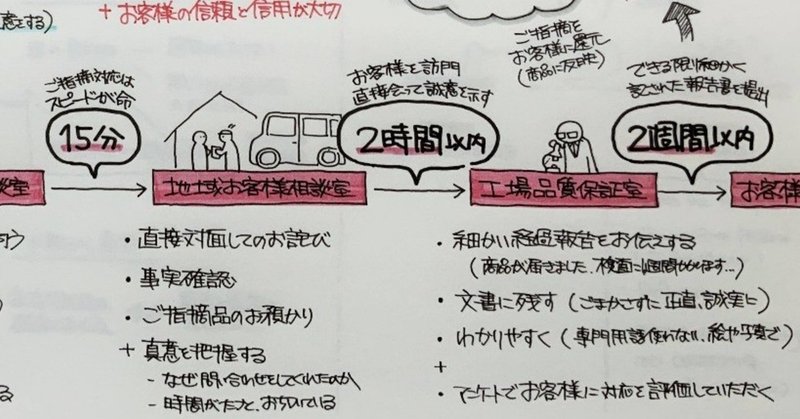 意をする)
+ お客様の信頼と信用が大切
ご指摘対応は
スピードが命
15分
お客様を訪問
直接会って誠意を示す
2時間以内
ご指摘を
お客様に還元
(商品に反映)
できる限り細かく
記された報告書を提出
2週間以内
談室
地域お客様相談室
工場品質保証室
お客様
・直接対面してのお詫び
・事実確認
・ご指摘品のお預かり
+ 真意を把握する
- なぜ問い合わせをしてくれたのか
- 時間がたつと、おちついている
・細かい経過報告をお伝えする
(商品が届きました、検査に1週間かかります…)
・文書に残す(ごまかさずに正直、誠実に)
・わかりやすく(専門用語使わない、絵や写真で)
+
・アンケートでお客様に対応を評価していただく